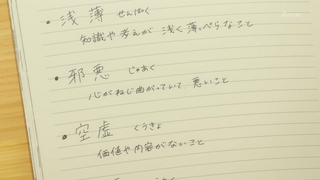 • 浅薄 せんぱく
知識や考えが 浅く薄っぺらなこと
• 邪悪 じゃあく
心がねじ曲がっていて 悪いこと
• 空虚 くうきょ
価値や内容がないこと